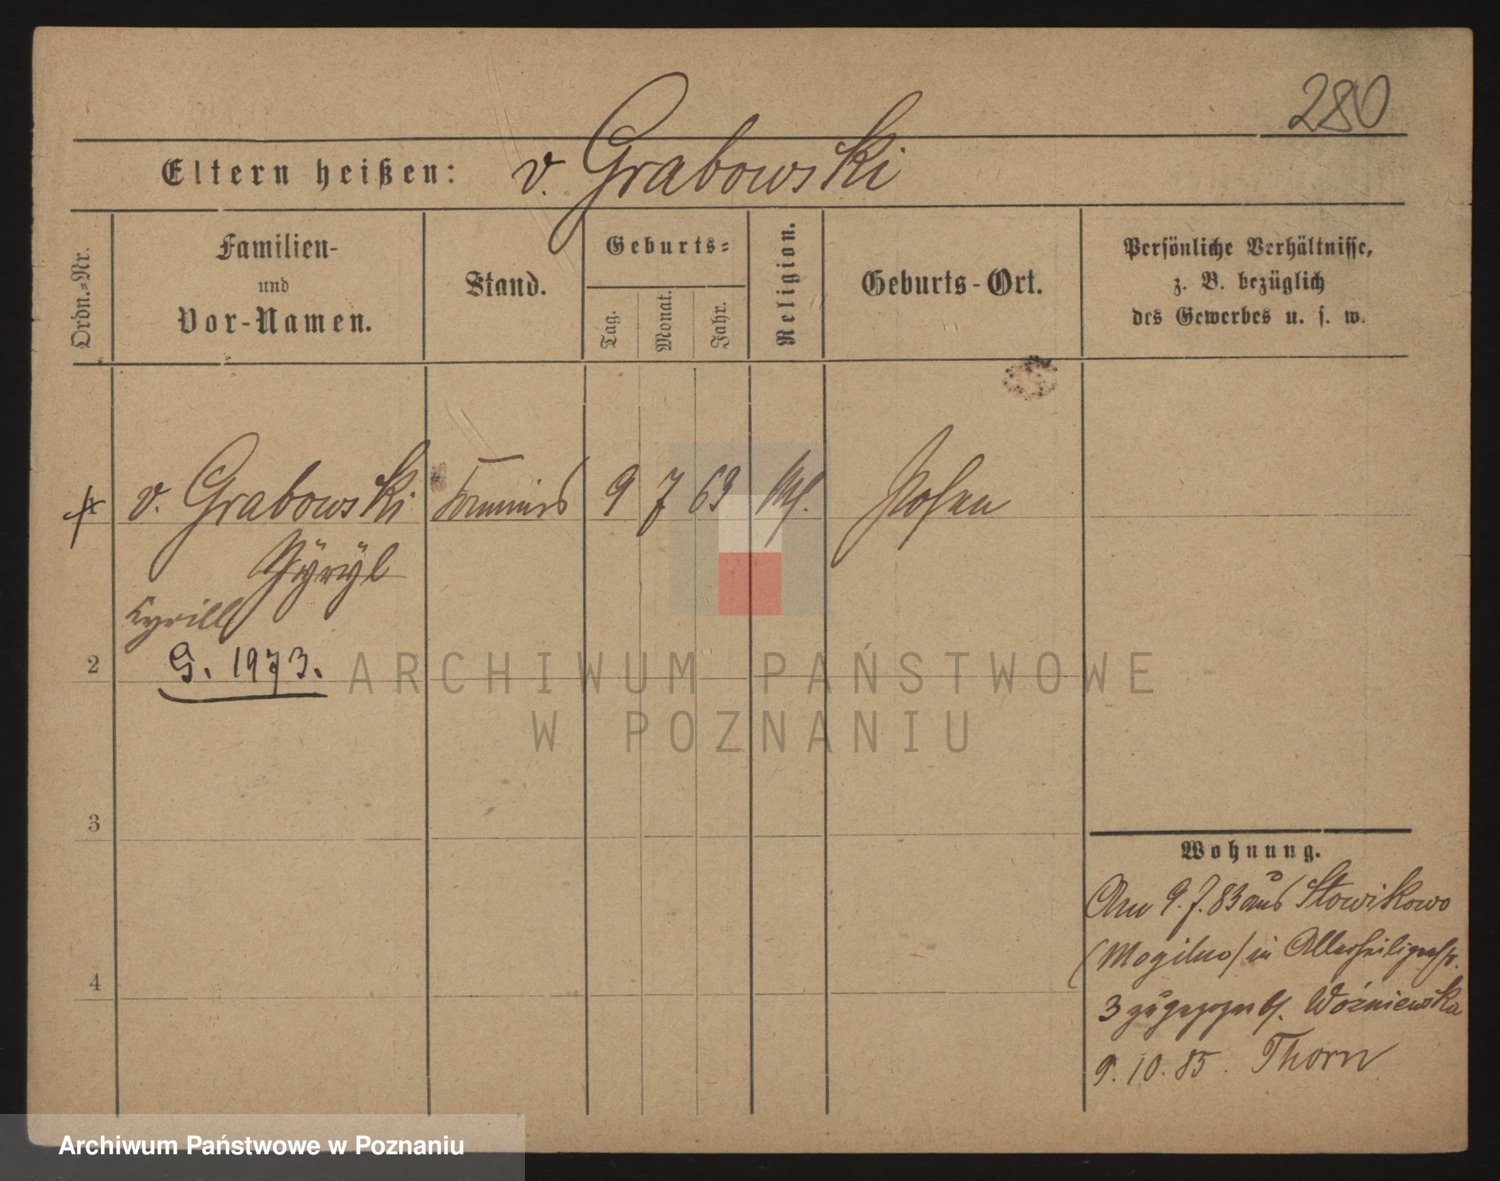 280
Eltern heißen: v. Grabowski
Ordn.-Nr.
Familien-
und
Vor-Namen.
Stand.
Geburts-
Tag.
Monat.
Jahr.
Religion.
Geburts-Ort.
Persönliche Verhältnisse,
z. B. bezüglich
des Gewerbes u. s. w.
v. Grabowski
Commis
9 7 63
Posen
Cyrill
G. 1973.
2
3
4
Wohnung.
Am 9. 7. 83 aus Słowikowo
(Mogilno) in Allerheiligenstr.
3 zugezogen b/. Woźniewska
9. 10. 85. Thorn
ARCHIWUM PAŃSTWOWE
W POZNANIU
Archiwum Państwowe w Poznaniu